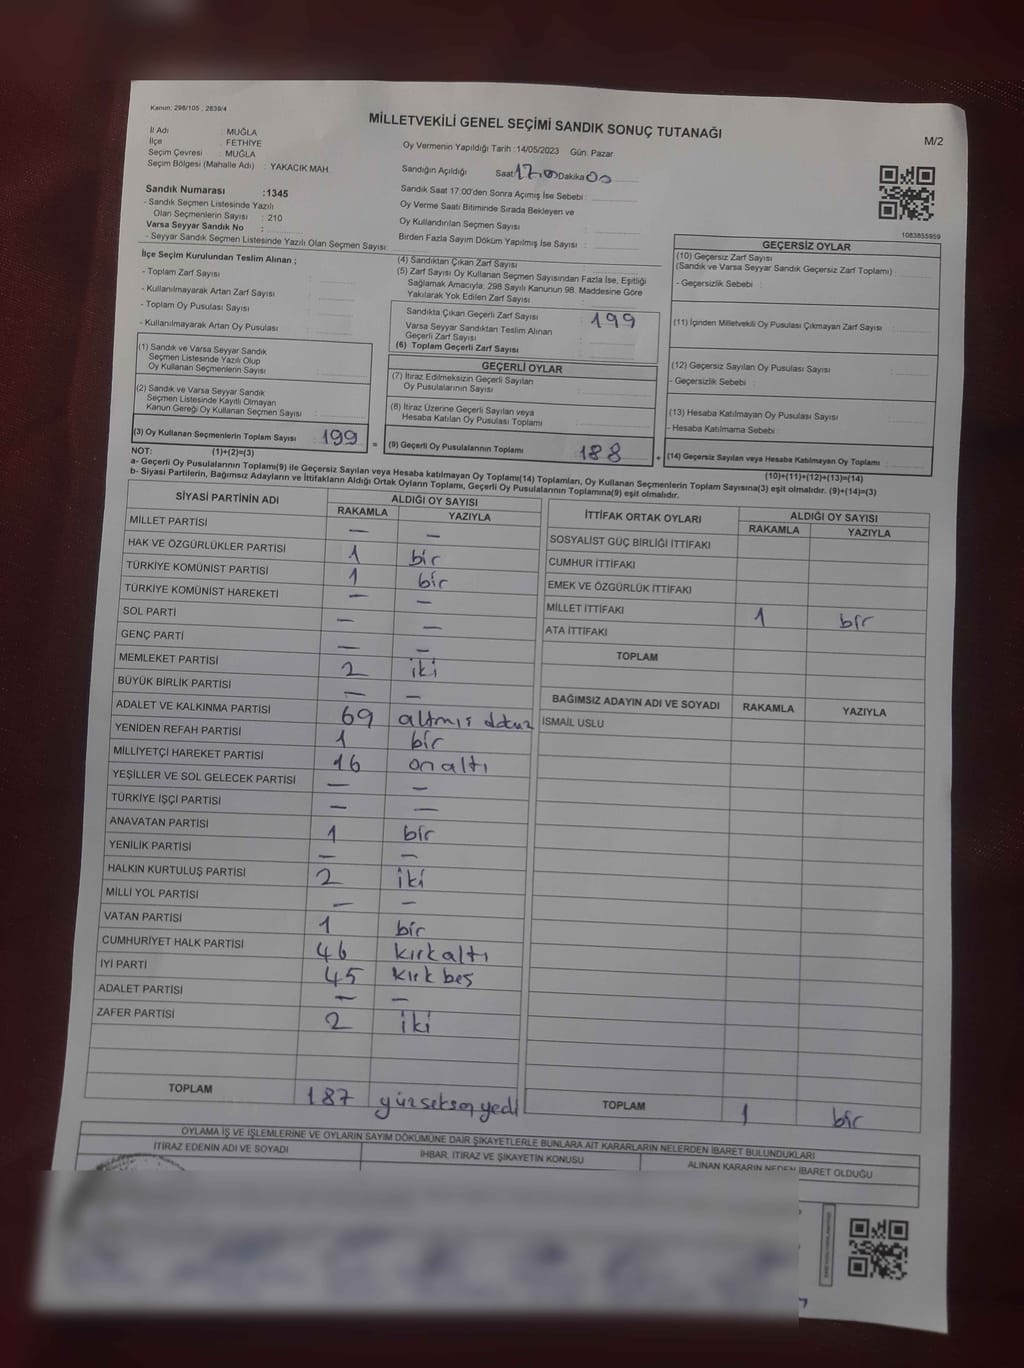 Kanun: 298/105 , 2839/4
MİLLETVEKİLİ GENEL SEÇİMİ SANDIK SONUÇ TUTANAĞI
M/2
İl Adı : MUĞLA
İlçe : FETHİYE
Seçim Çevresi : MUĞLA
Seçim Bölgesi (Mahalle Adı) : YAKACIK MAH.
Sandık Numarası :1345
- Sandık Seçmen Listesinde Yazılı
Olan Seçmenlerin Sayısı : 210
Varsa Seyyar Sandık No :
- Seyyar Sandık Seçmen Listesinde Yazılı Olan Seçmen Sayısı:
Oy Vermenin Yapıldığı Tarih :14/05/2023 Gün: Pazar
Sandığın Açıldığı Saat 17.00 Dakika 00
Sandık Saat 17:00'den Sonra Açımış İse Sebebi :
Oy Verme Saati Bitiminde Sırada Bekleyen ve
Oy Kullandırılan Seçmen Sayısı :
Birden Fazla Sayım Döküm Yapılmış İse Sayısı :
1083855959
İlçe Seçim Kurulundan Teslim Alınan ;
- Toplam Zarf Sayısı :
- Kullanılmayarak Artan Zarf Sayısı :
- Toplam Oy Pusulası Sayısı :
- Kullanılmayarak Artan Oy Pusulası :
(1) Sandık ve Varsa Seyyar Sandık
Seçmen Listesinde Yazılı Olup
Oy Kullanan Seçmenlerin Sayısı :
(2) Sandık ve Varsa Seyyar Sandık
Seçmen Listesinde Kayıtlı Olmayan
Kanun Gereği Oy Kullanan Seçmen Sayısı :
(3) Oy Kullanan Seçmenlerin Toplam Sayısı 199 =
(4) Sandıktan Çıkan Zarf Sayısı :
(5) Zarf Sayısı Oy Kullanan Seçmen Sayısından Fazla İse, Eşitliği
Sağlamak Amacıyla, 298 Sayılı Kanunun 98. Maddesine Göre
Yakılarak Yok Edilen Zarf Sayısı :
Sandıkta Çıkan Geçerli Zarf Sayısı : 199
Varsa Seyyar Sandıktan Teslim Alınan
Geçerli Zarf Sayısı :
(6) Toplam Geçerli Zarf Sayısı :
GEÇERLİ OYLAR
(7) İtiraz Edilmeksizin Geçerli Sayılan
Oy Pusulalarının Sayısı :
(8) İtiraz Üzerine Geçerli Sayılan veya
Hesaba Katılan Oy Pusulası Toplamı :
(9) Geçerli Oy Pusulalarının Toplamı 188 +
GEÇERSİZ OYLAR
(10) Geçersiz Zarf Sayısı
(Sandık ve Varsa Seyyar Sandık Geçersiz Zarf Toplamı) :
- Geçersizlik Sebebi :
(11) İçinden Milletvekili Oy Pusulası Çıkmayan Zarf Sayısı :
(12) Geçersiz Sayılan Oy Pusulası Sayısı :
- Geçersizlik Sebebi :
(13) Hesaba Katılmayan Oy Pusulası Sayısı :
- Hesaba Katılmama Sebebi :
(14) Geçersiz Sayılan veya Hesaba Katılmayan Oy Toplamı :
NOT: (1)+(2)=(3)
(10)+(11)+(12)+(13)=(14)
a- Geçerli Oy Pusulalarının Toplamı(9) ile Geçersiz Sayılan veya Hesaba katılmayan Oy Toplamı(14) Toplamları, Oy Kullanan Seçmenlerin Toplam Sayısına(3) eşit olmalıdır. (9)+(14)=(3)
b- Siyasi Partilerin, Bağımsız Adayların ve İttifakların Aldığı Ortak Oyların Toplamı, Geçerli Oy Pusulalarının Toplamına(9) eşit olmalıdır.
SİYASİ PARTİNİN ADI ALDIĞI OY SAYISI
RAKAMLA YAZIYLA
MİLLET PARTİSİ — —
HAK VE ÖZGÜRLÜKLER PARTİSİ 1 bir
TÜRKİYE KOMÜNİST PARTİSİ 1 bir
TÜRKİYE KOMÜNİST HAREKETİ — —
SOL PARTİ — —
GENÇ PARTİ — —
MEMLEKET PARTİSİ 2 iki
BÜYÜK BİRLİK PARTİSİ — —
ADALET VE KALKINMA PARTİSİ 69 altmış dokuz
YENİDEN REFAH PARTİSİ 1 bir
MİLLİYETÇİ HAREKET PARTİSİ 16 on altı
YEŞİLLER VE SOL GELECEK PARTİSİ — —
TÜRKİYE İŞÇİ PARTİSİ — —
ANAVATAN PARTİSİ 1 bir
YENİLİK PARTİSİ — —
HALKIN KURTULUŞ PARTİSİ 2 iki
MİLLİ YOL PARTİSİ — —
VATAN PARTİSİ 1 bir
CUMHURİYET HALK PARTİSİ 46 kırkaltı
İYİ PARTİ 45 kırk beş
ADALET PARTİSİ — —
ZAFER PARTİSİ 2 iki
TOPLAM 187 yüzseksenyedi
İTTİFAK ORTAK OYLARI ALDIĞI OY SAYISI
RAKAMLA YAZIYLA
SOSYALİST GÜÇ BİRLİĞİ İTTİFAKI
CUMHUR İTTİFAKI
EMEK VE ÖZGÜRLÜK İTTİFAKI
MİLLET İTTİFAKI 1 bir
ATA İTTİFAKI
TOPLAM
BAĞIMSIZ ADAYIN ADI VE SOYADI RAKAMLA YAZIYLA
İSMAİL USLU
TOPLAM 1 bir
OYLAMA İŞ VE İŞLEMLERİNE VE OYLARIN SAYIM DÖKÜMÜNE DAİR ŞİKAYETLERLE BUNLARA AİT KARARLARIN NELERDEN İBARET BULUNDUKLARI
İTİRAZ EDENİN ADI VE SOYADI İHBAR, İTİRAZ VE ŞİKAYETİN KONUSU ALINAN KARARIN NEDEN İBARET OLDUĞU